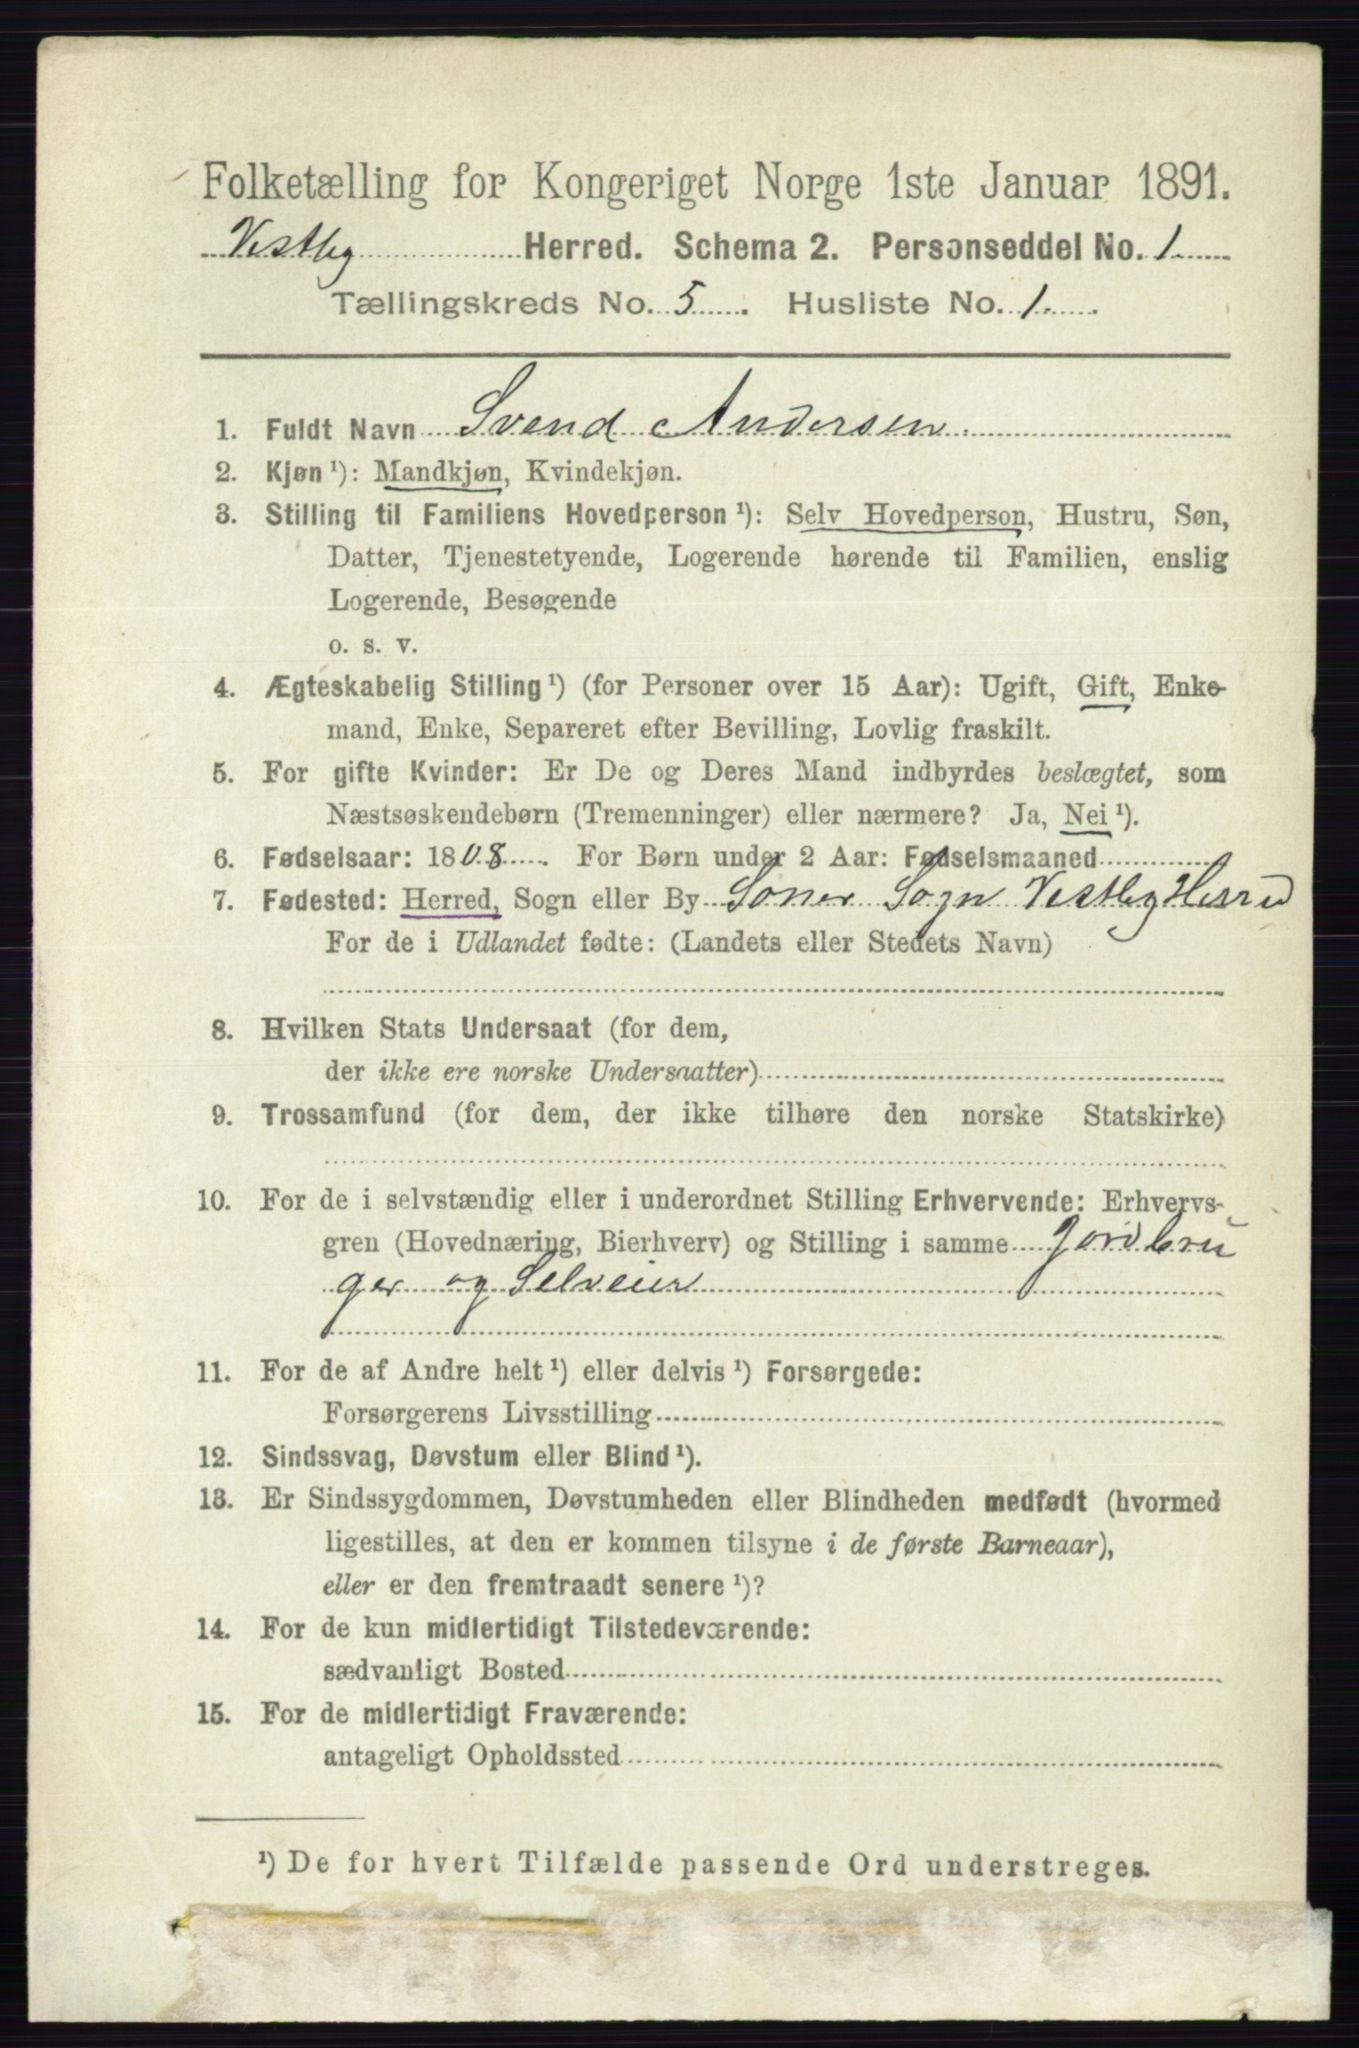 Folketælling for Kongeriget Norge 1ste Januar 1891.
Vestby Herred. Schema 2. Personseddel No. 1
Tællingskreds No. 5. Husliste No. 1.
1. Fuldt Navn Svend Andersen.
2. Kjøn ¹): Mandkjøn, Kvindekjøn.
3. Stilling til Familiens Hovedperson ¹): Selv Hovedperson, Hustru, Søn,
Datter, Tjenestetyende, Logerende hørende til Familien, enslig
Logerende, Besøgende
o. s. v.
4. Ægteskabelig Stilling ¹) (for Personer over 15 Aar): Ugift, Gift, Enke-
mand, Enke, Separeret efter Bevilling, Lovlig fraskilt.
5. For gifte Kvinder: Er De og Deres Mand indbyrdes beslægtet, som
Næstsøskendebørn (Tremenninger) eller nærmere? Ja, Nei ¹).
6. Fødselsaar: 1808. For Børn under 2 Aar: Fødselsmaaned
7. Fødested: Herred, Sogn eller By Soner Sogn Vestby Herred
For de i Udlandet fødte: (Landets eller Stedets Navn)
8. Hvilken Stats Undersaat (for dem,
der ikke ere norske Undersaatter)
9. Trossamfund (for dem, der ikke tilhøre den norske Statskirke)
10. For de i selvstændig eller i underordnet Stilling Erhvervende: Erhvervs-
gren (Hovednæring, Bierhverv) og Stilling i samme Jordbru
ger og Selveier
11. For de af Andre helt ¹) eller delvis ¹) Forsørgede:
Forsørgerens Livsstilling
12. Sindssvag, Døvstum eller Blind ¹).
13. Er Sindssygdommen, Døvstumheden eller Blindheden medfødt (hvormed
ligestilles, at den er kommen tilsyne i de første Barneaar),
eller er den fremtraadt senere ¹)?
14. For de kun midlertidigt Tilstedeværende:
sædvanligt Bosted
15. For de midlertidigt Fraværende:
antageligt Opholdssted
¹) De for hvert Tilfælde passende Ord understreges.